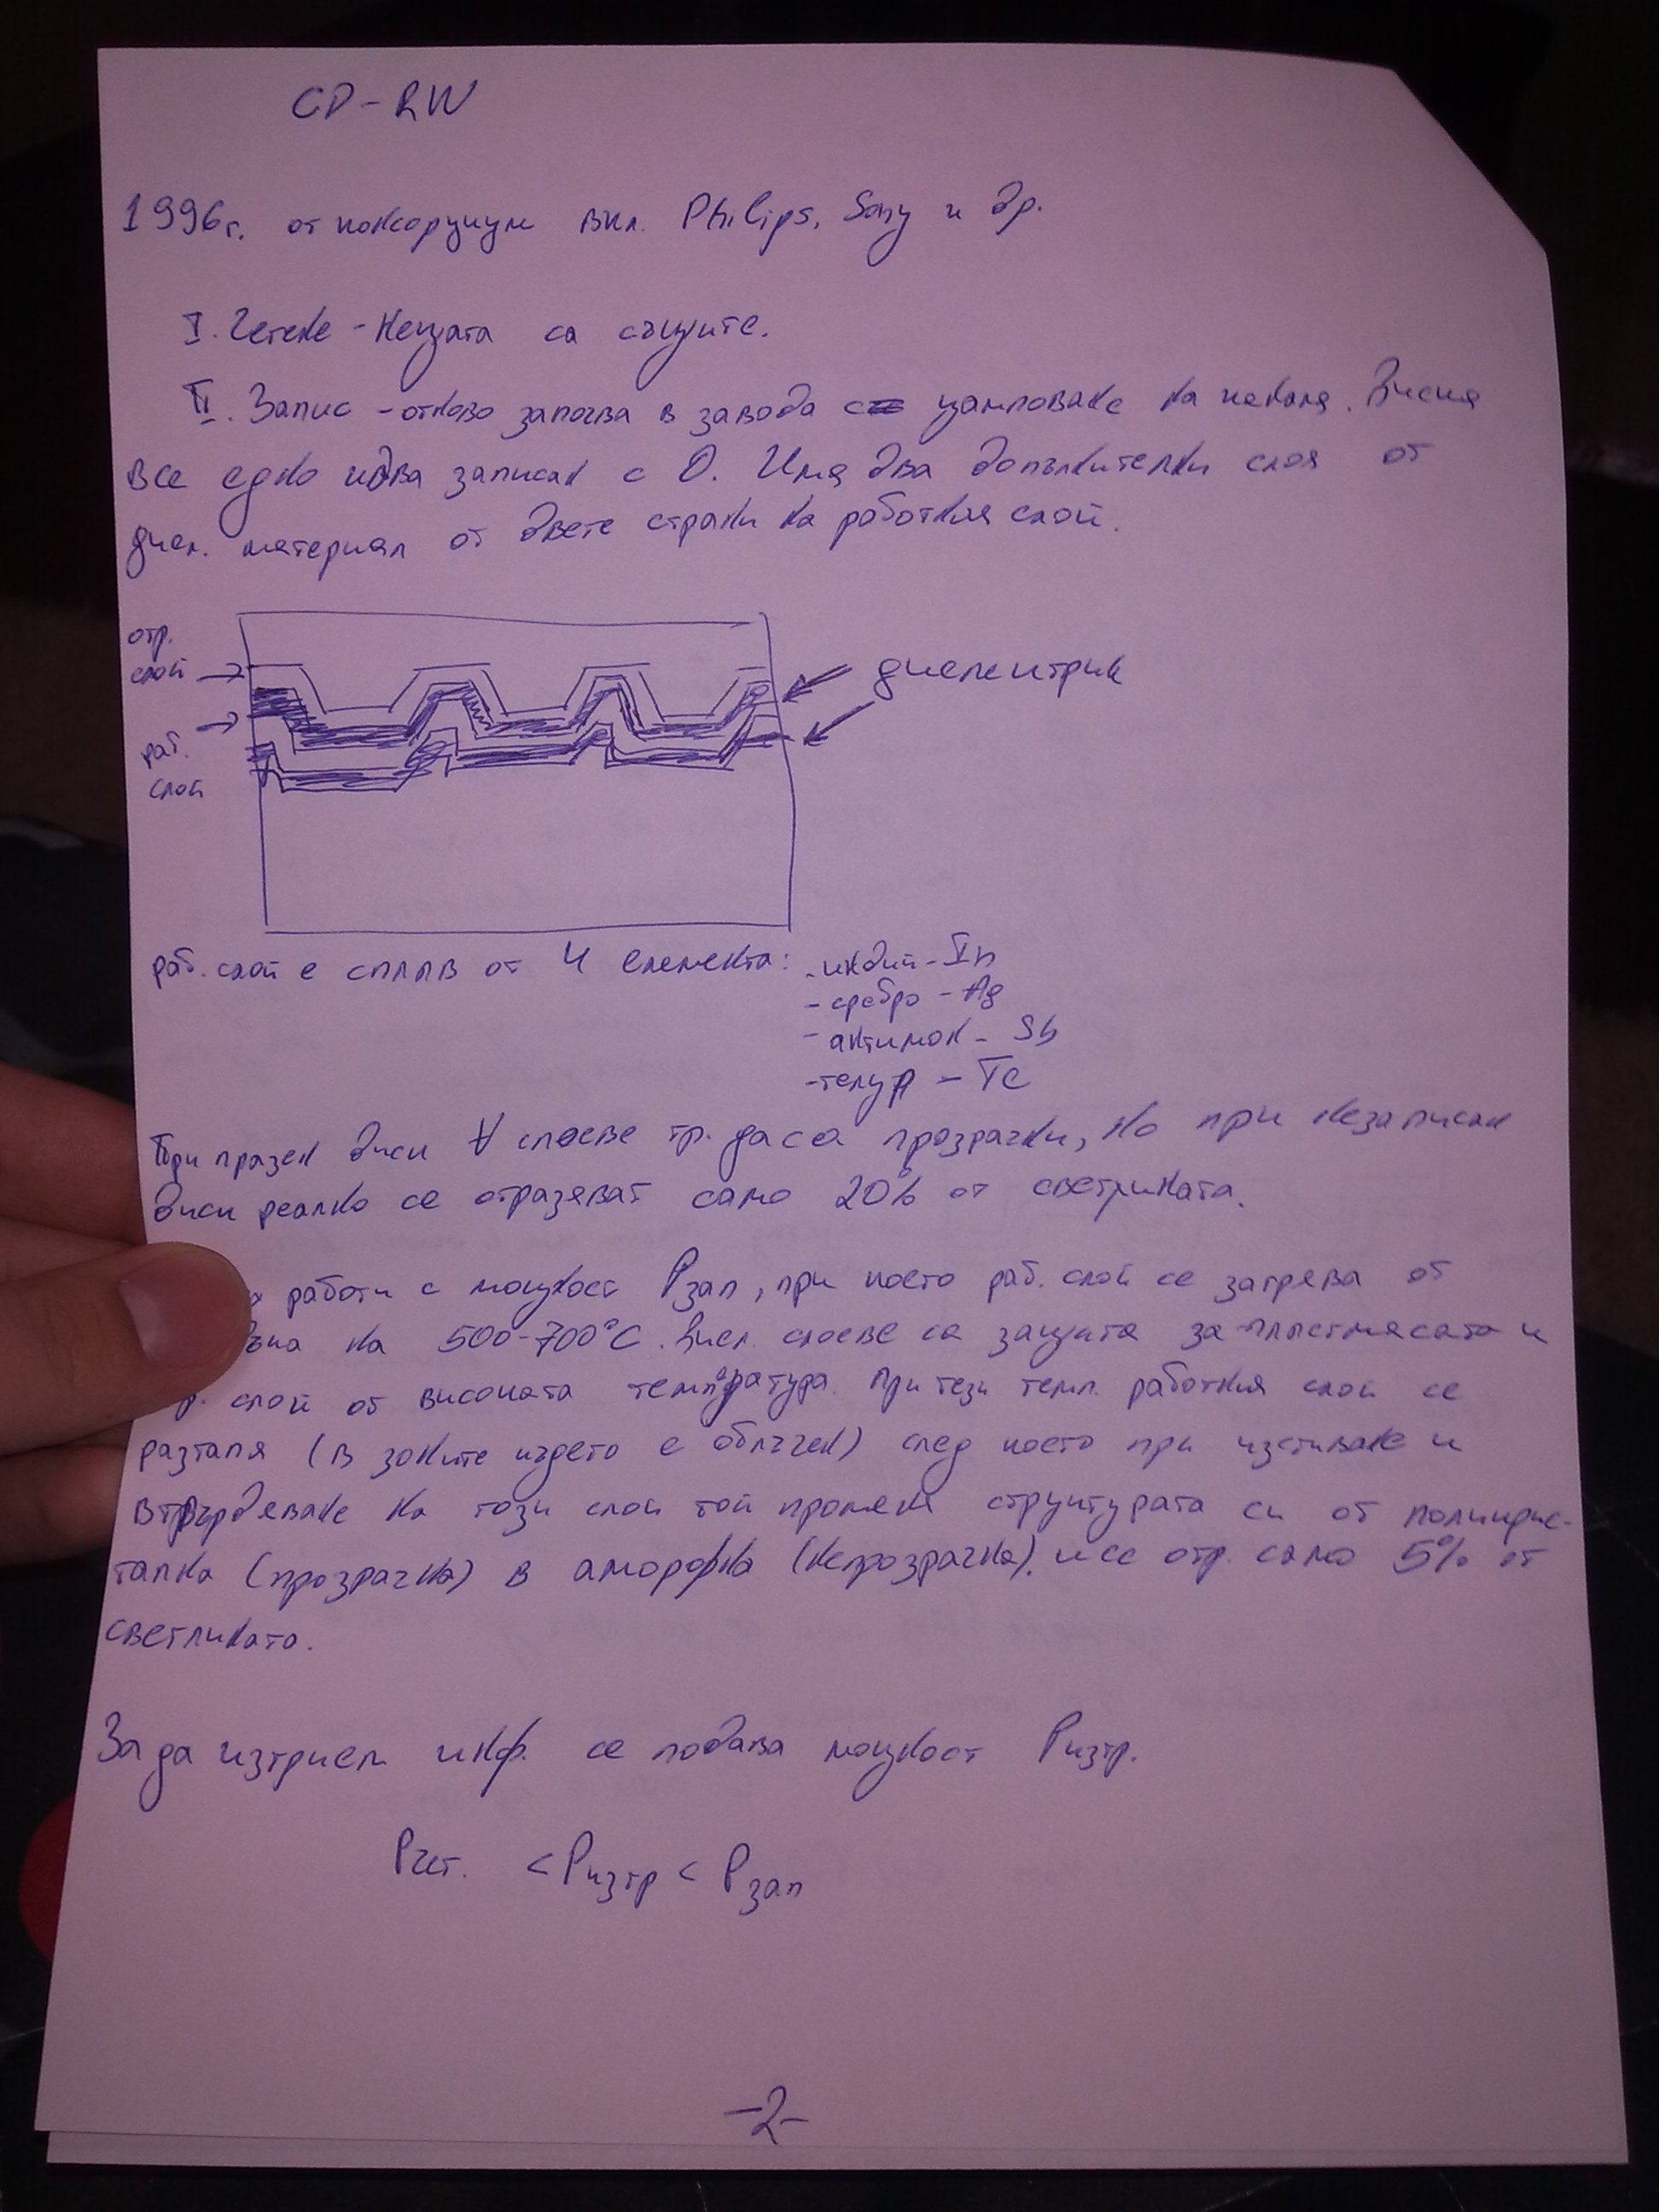 CD-RW
1996г. от консорциум вкл. Philips, Sony и др.
I. Четене - Нещата са същите.
II. Запис - отново започва в завода с щамповане на канала. Диска
все едно идва записан с 0. Има два допълнителни слоя от
диел. материал от двете страни на работния слой.
отр.
слой
диелектрик
раб.
слой
раб. слой е сплав от 4 елемента:
- индий - In
- сребро - Ag
- антимон - Sb
- телур - Te
При празен диск ∀ слоеве тр. да са прозрачни, но при незаписан
диск реално се отразяват само 20% от светлината.
работи с мощност Pзап, при което раб. слой се загрява от
на 500-700°C. Диел. слоеве са защита за пластмасата и
слой от високата температура. При тези темп. работния слой се
разтапя (в зоните където е облъчен) след което при изстиване и
втвърдяване на този слой той променя структурата си от поликрис-
тална (прозрачна) в аморфна (непрозрачна). и се отр. само 5% от
светлината.
За да изтрием инф. се подава мощност Pизтр.
Pчет. < Pизтр < Pзап
-2-